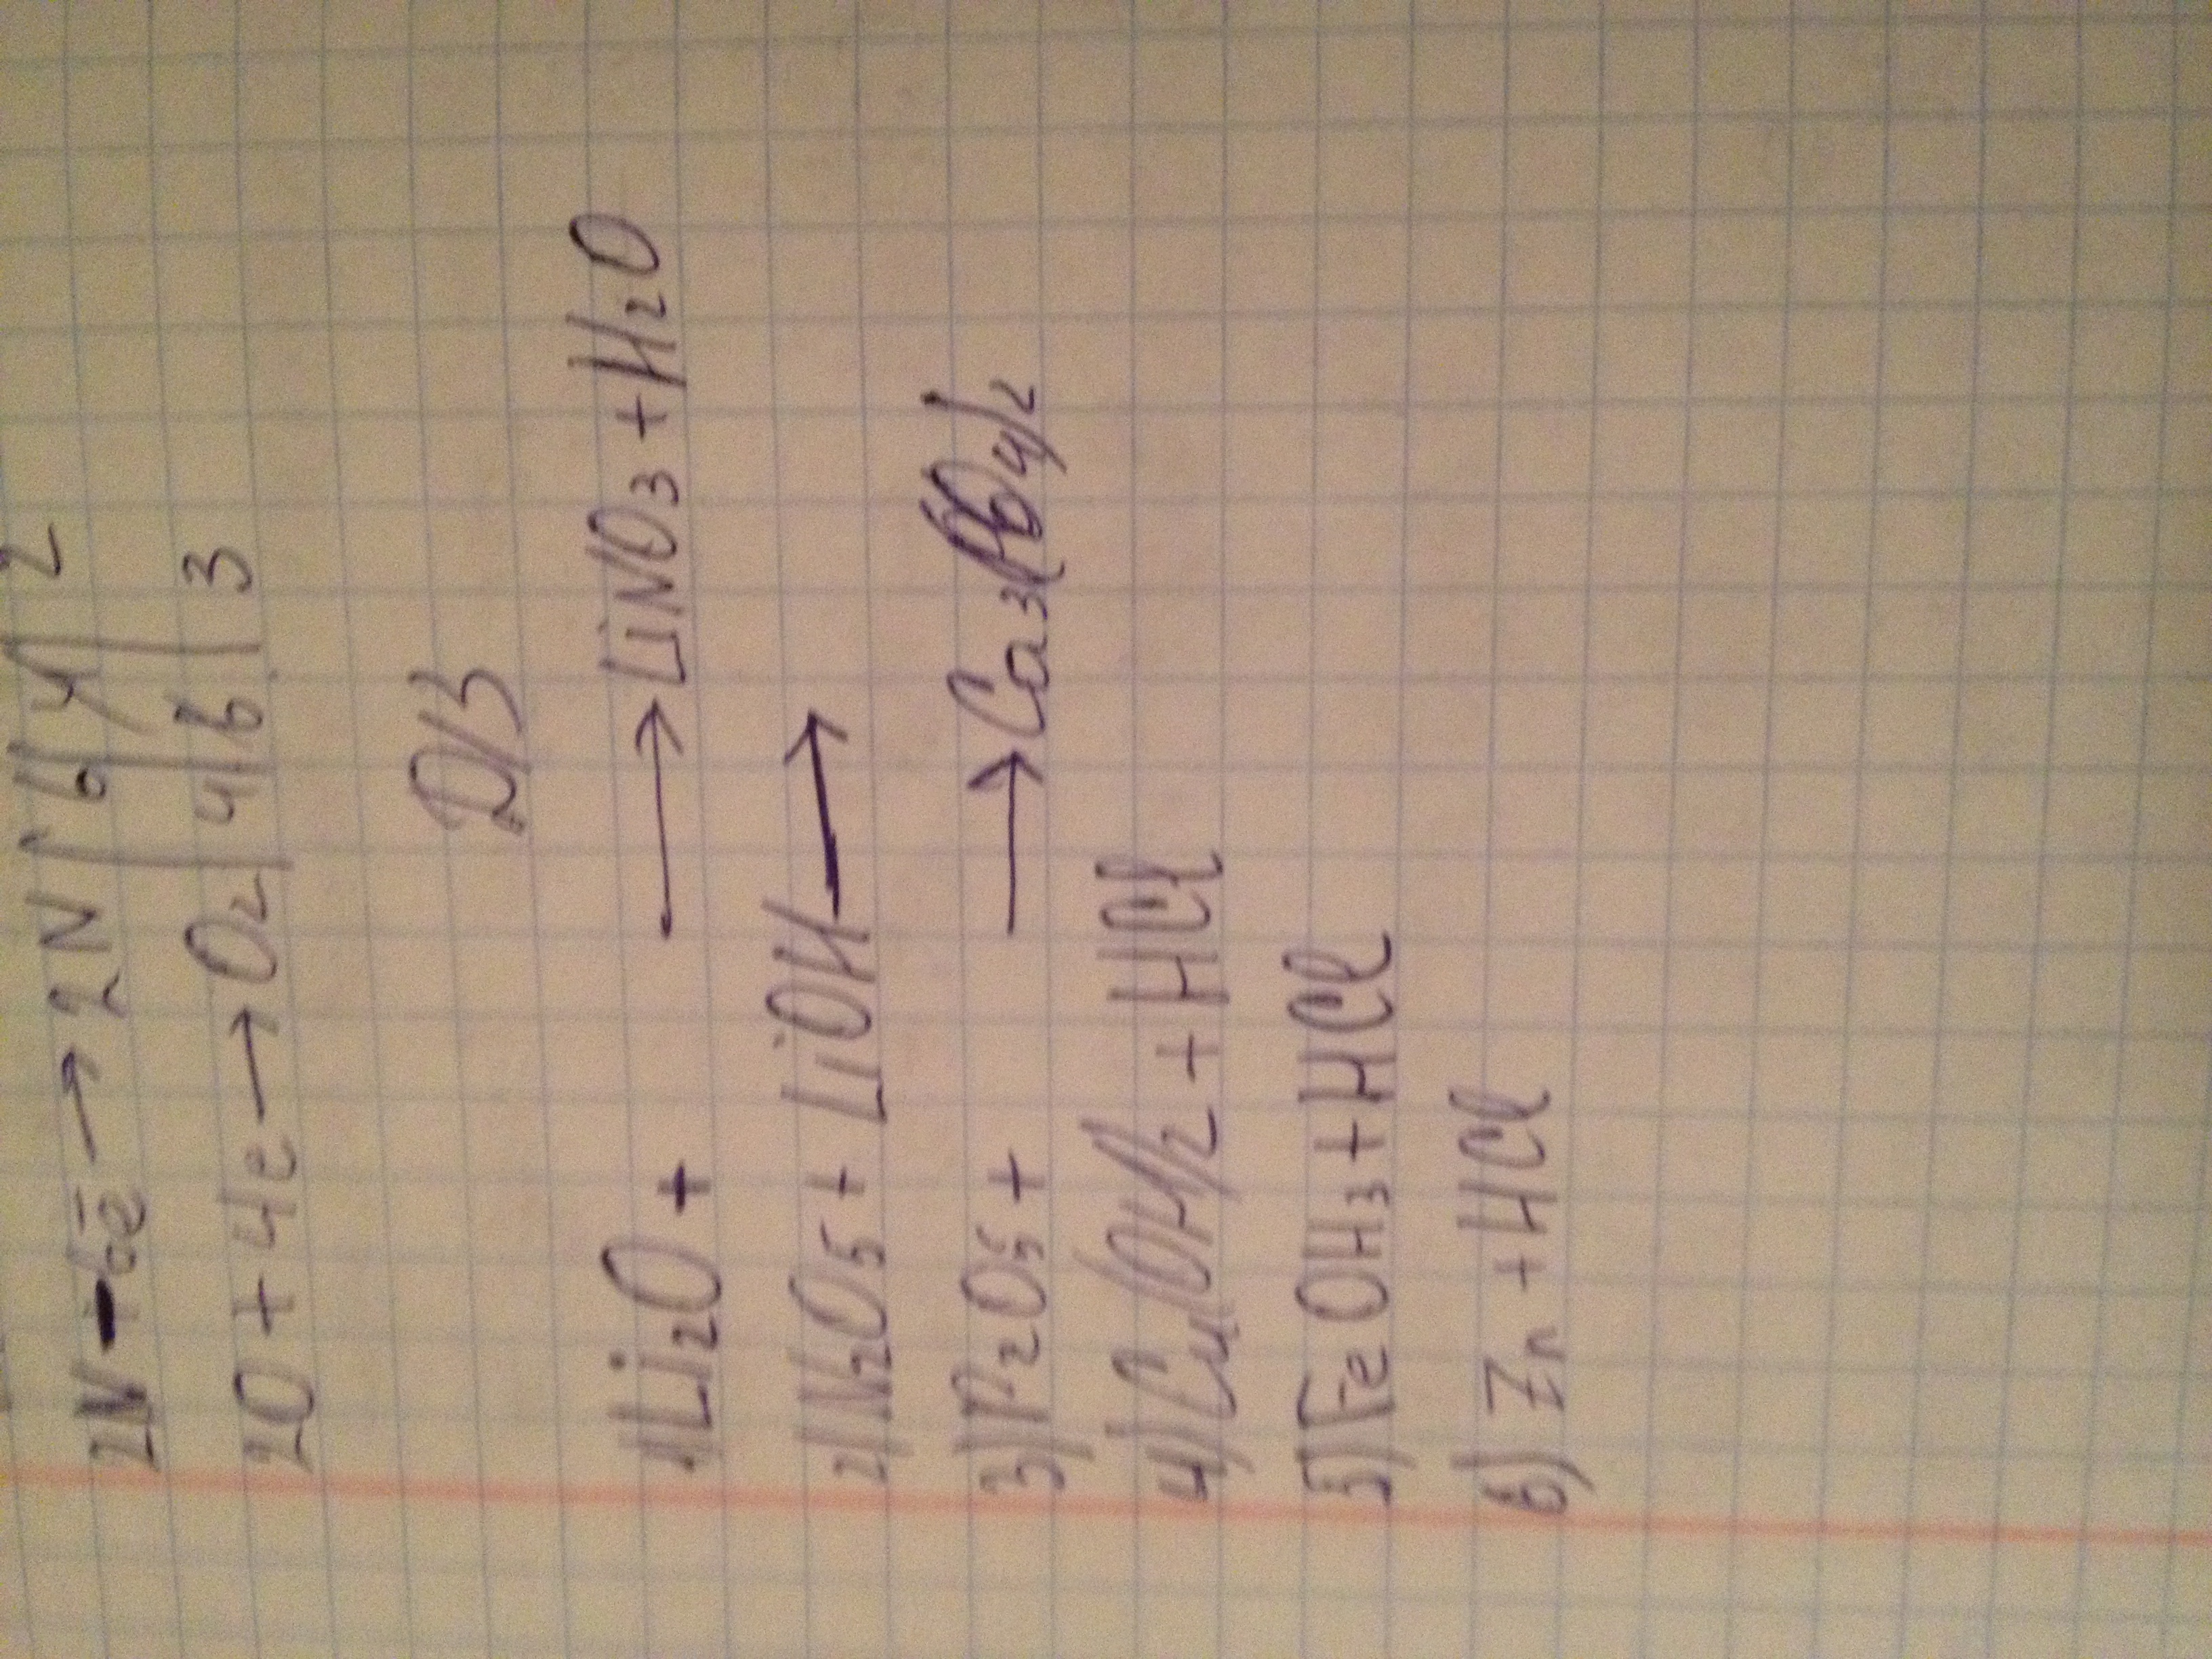 2N - 6ē → 2N | 6 | 4 | 2
2O + 4e → O₂ | 4 | 6 | 3
D/З
1) Li₂O + → LiNO₃ + H₂O
2) N₂O₅ + LiOH →
3) P₂O₅ + → Ca₃(PO₄)₂
4) Cu(OH)₂ + HCl
5) FeOH₃ + HCl
6) Zn + HCl